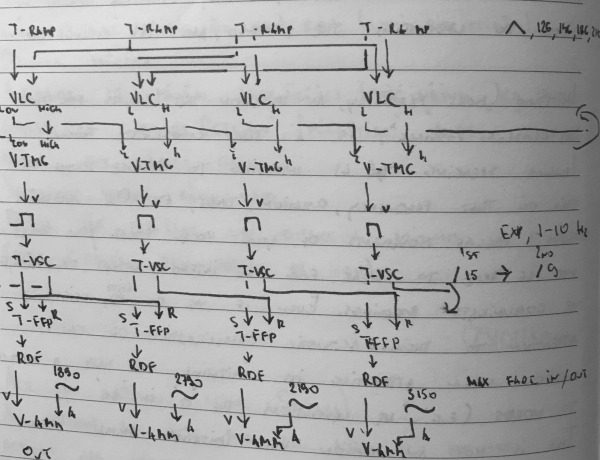 T-RAMP T-RAMP T-RAMP T-RAMP
VLC VLC VLC VLC
Low High L H L H L H
Low High L h L h L h
V-TMG V-TMG V-TMG V-TMG
V V V
EXP, 1-10 Hz
1ST 2ND
T-VSC T-VSC T-VSC T-VSC /15 → /9
S R S R S R S R
T-FFP T-FFP T-FFP TFFP
RDF RDF RDF RDF
1890 2790 2190 3150 MAX FADE IN/OUT
V A V A V A V A
V-AMM V-AMM V-AMM V-AMM
OUT